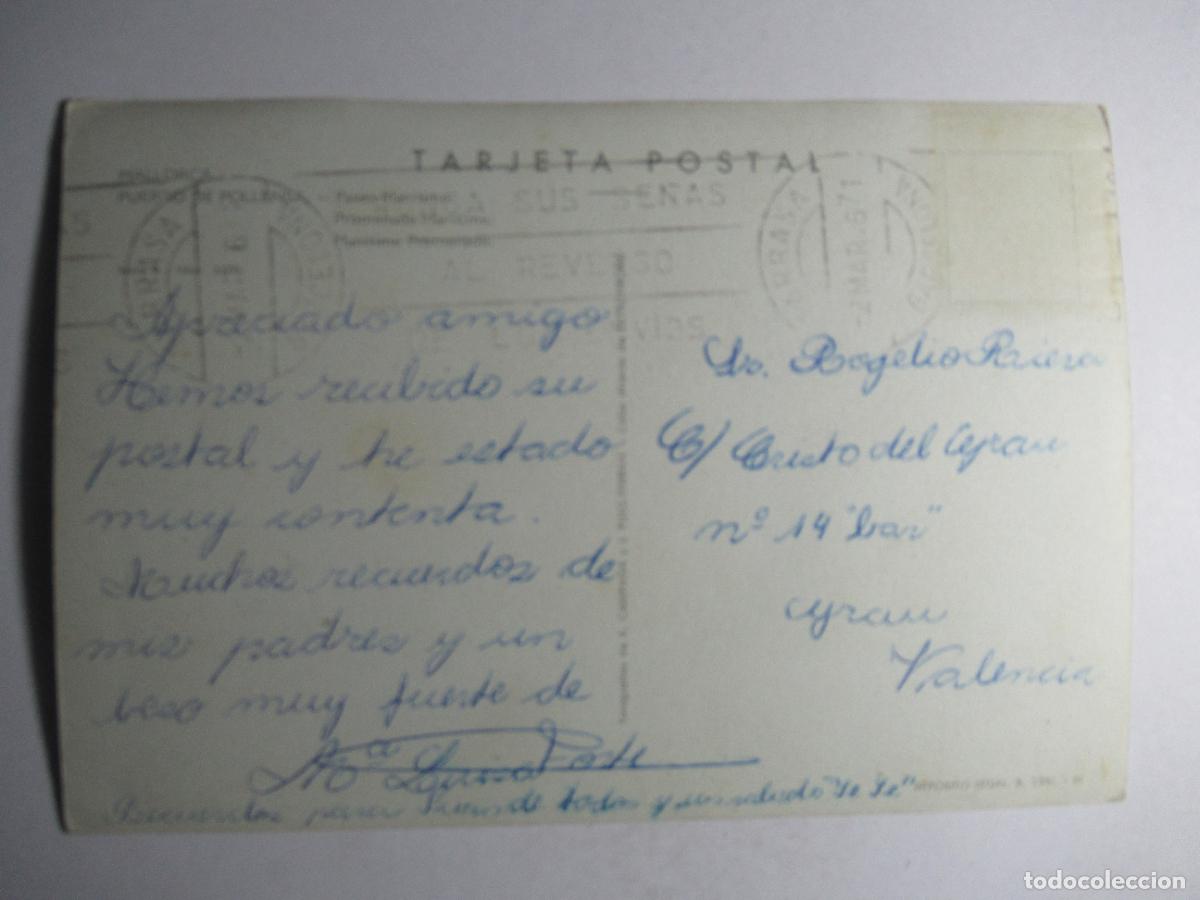 TARJETA POSTAL
MALLORCA
PUERTO DE POLLENSA - Paseo Marítimo.
Promenade Maritime.
Maritime Promenade.
A SUS SEÑAS
AL REVERSO
TARRASA
BARCELONA
2 MAR. 67
Apreciado amigo
Hemos recibido su
postal y he estado
muy contenta.
Muchos recuerdos de
mis padres y un
beso muy fuerte de
Mª Luisa
Recuerdos para de todos y un saludo "Ye Ye"
Sr. Rogelio Riera
C/ Cristo del Grau
nº 14 "bar"
Grau
Valencia
DEPOSITO LEGAL B.
todocoleccion